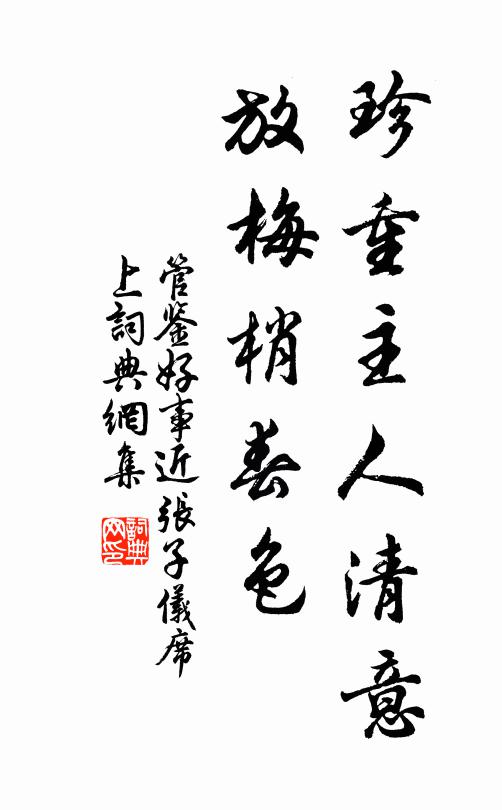 珍重主人清意
放梅梢春色
管鉴好事近張子儀席
上詞典網集
詞典网印